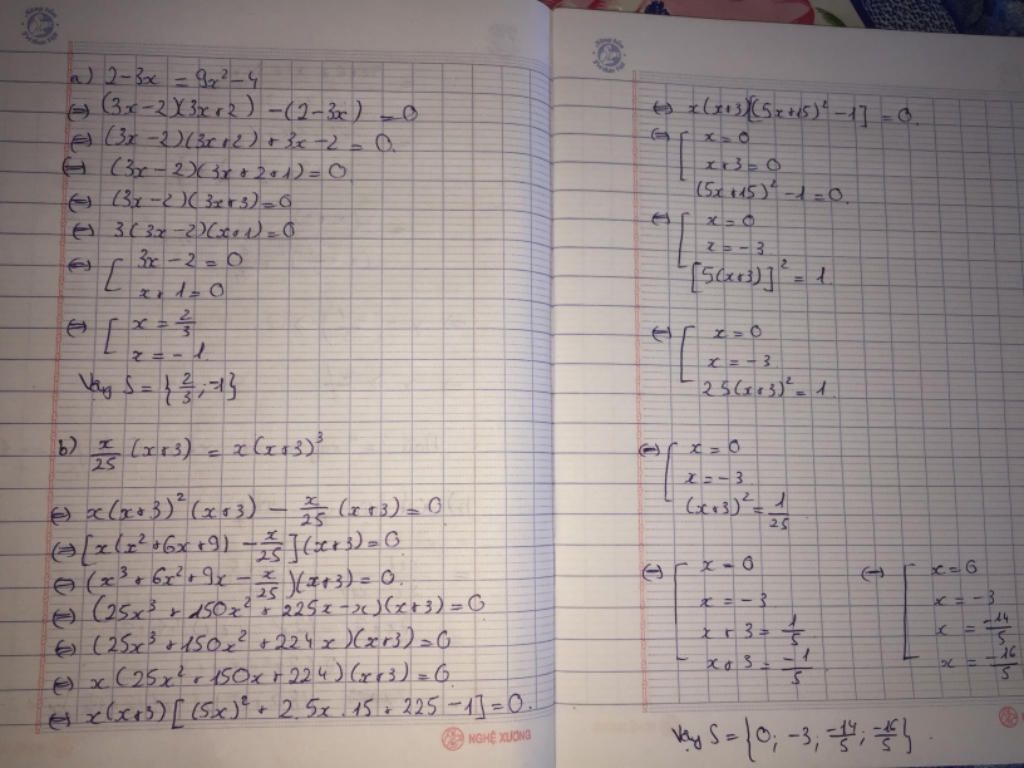 a) 2-3x = 9x² - 4
⇔ (3x-2)(3x+2) - (2-3x) = 0
⇔ (3x-2)(3x+2) + 3x-2 = 0.
⇔ (3x-2)(3x+2+1) = 0
⇔ (3x-2)(3x+3) = 0
⇔ 3(3x-2)(x+1) = 0
⇔ [ 3x-2 = 0
x+1 = 0
⇔ [ x = 2/3
x = -1
Vậy S = {2/3; -1}
b) x/25 (x+3) = x(x+3)³
⇔ x(x+3)²(x+3) - x/25 (x+3) = 0
⇔ [x(x²+6x+9) - x/25](x+3) = 0
⇔ (x³+6x²+9x - x/25)(x+3) = 0.
⇔ (25x³+150x²+225x-x)(x+3) = 0
⇔ (25x³+150x²+224x)(x+3) = 0
⇔ x(25x²+150x+224)(x+3) = 0
⇔ x(x+3)[(5x)²+2.5x.15+225-1] = 0.
NGHỆ XƯƠNG
⇔ x(x+3)[(5x+15)²-1] = 0.
⇔ [ x = 0
x+3 = 0
(5x+15)²-1 = 0.
⇔ [ x = 0
x = -3
[5(x+3)]² = 1
⇔ [ x = 0
x = -3
25(x+3)² = 1
⇔ [ x = 0
x = -3
(x+3)² = 1/25
⇔ [ x = 0
x = -3
x+3 = 1/5
x+3 = -1/5
⇔ [ x = 0
x = -3
x = -14/5
x = -16/5
Vậy S = {0; -3; -14/5; -16/5}.